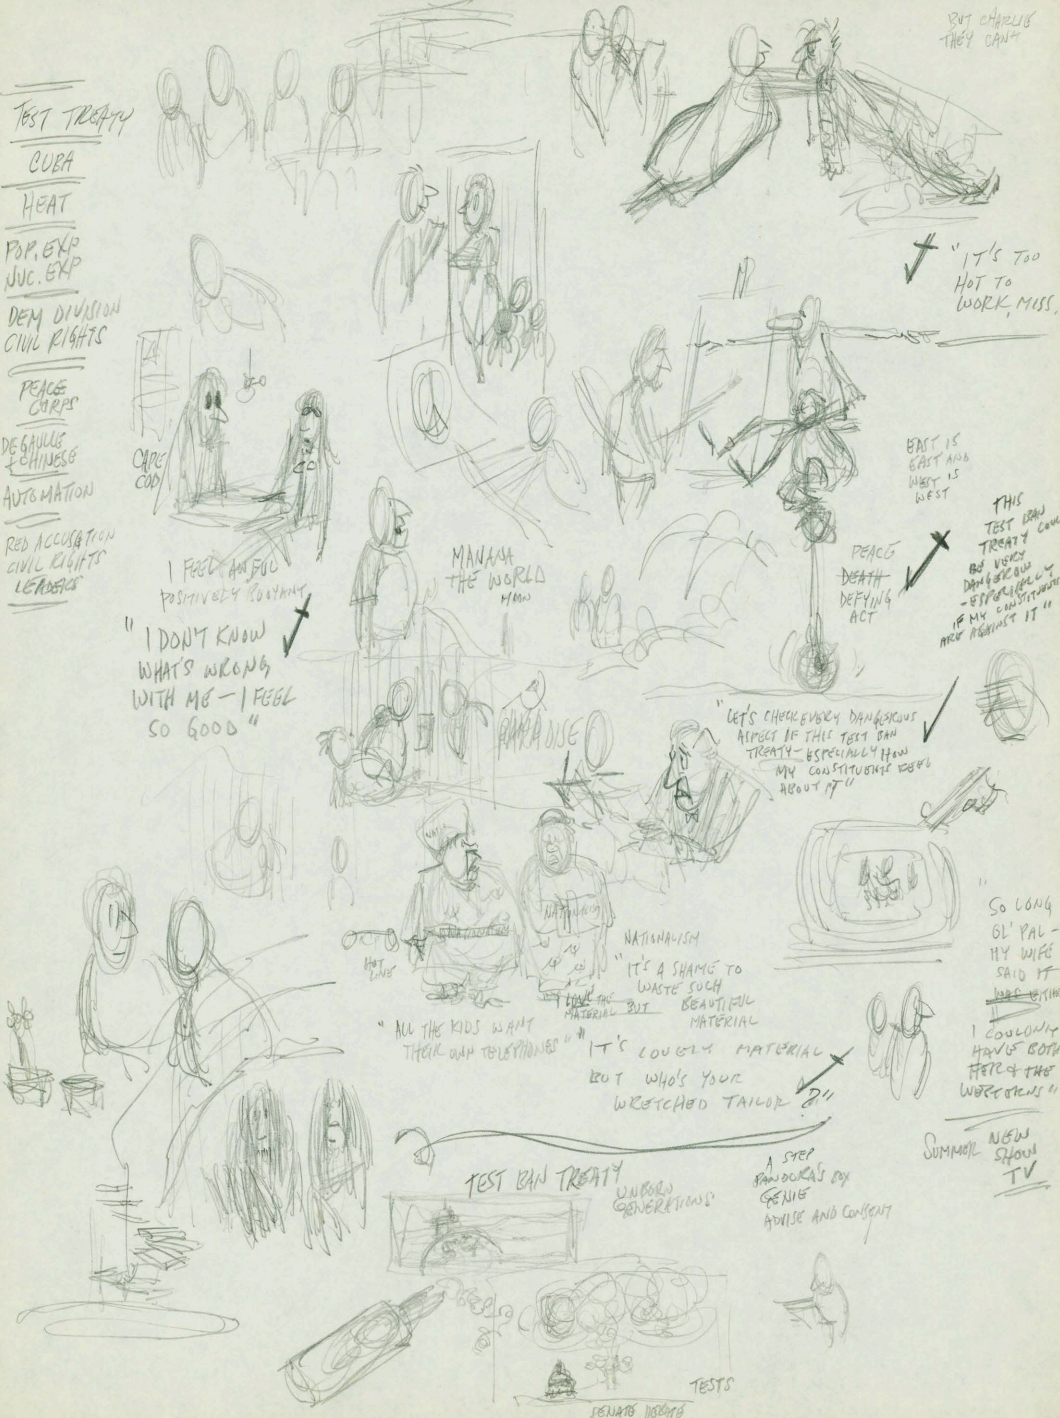 BUT CHARLIE
THEY CAN'T
TEST TREATY
CUBA
HEAT
POP. EXP
NUC. EXP
DEM DIVISION
CIVIL RIGHTS
PEACE
CORPS
DEGAULLE
+ CHINESE
AUTOMATION
RED ACCUSATION
CIVIL RIGHTS
LEADERS
"IT'S TOO
HOT TO
WORK, MISS.
CAPE
COD
I FEEL AWFUL
POSITIVELY BUOYANT
"I DON'T KNOW
WHAT'S WRONG
WITH ME — I FEEL
SO GOOD"
MANANA
THE WORLD
MOON
EAST IS
EAST AND
WEST IS
WEST
PEACE
DEATH
DEFYING
ACT
THIS
TEST BAN
TREATY COULD
BE VERY
DANGEROUS
- ESPECIALLY
IF MY CONSTITUENTS
ARE AGAINST IT"
PARADISE
"LET'S CHECK EVERY DANGEROUS
ASPECT OF THIS TEST BAN
TREATY — ESPECIALLY HOW
MY CONSTITUENTS FEEL
ABOUT IT"
NATIONALISM
HOT
LINE
NATIONALISM
"IT'S A SHAME TO
WASTE SUCH
BEAUTIFUL
MATERIAL
I LOVE THE
MATERIAL BUT
"ALL THE KIDS WANT
THEIR OWN TELEPHONES"
"IT'S LOVELY MATERIAL
BUT WHO'S YOUR
WRETCHED TAILOR?"
"SO LONG
OL' PAL —
MY WIFE
SAID IT
WAS EITHER
I COULDN'T
HAVE BOTH
HER & THE
WESTERNS"
SUMMER NEW
SHOWS
TV
TEST BAN TREATY
UNBORN
GENERATIONS
A STEP
PANDORA'S BOX
GENIE
ADVISE AND CONSENT
TESTS
SENATE DEBATE